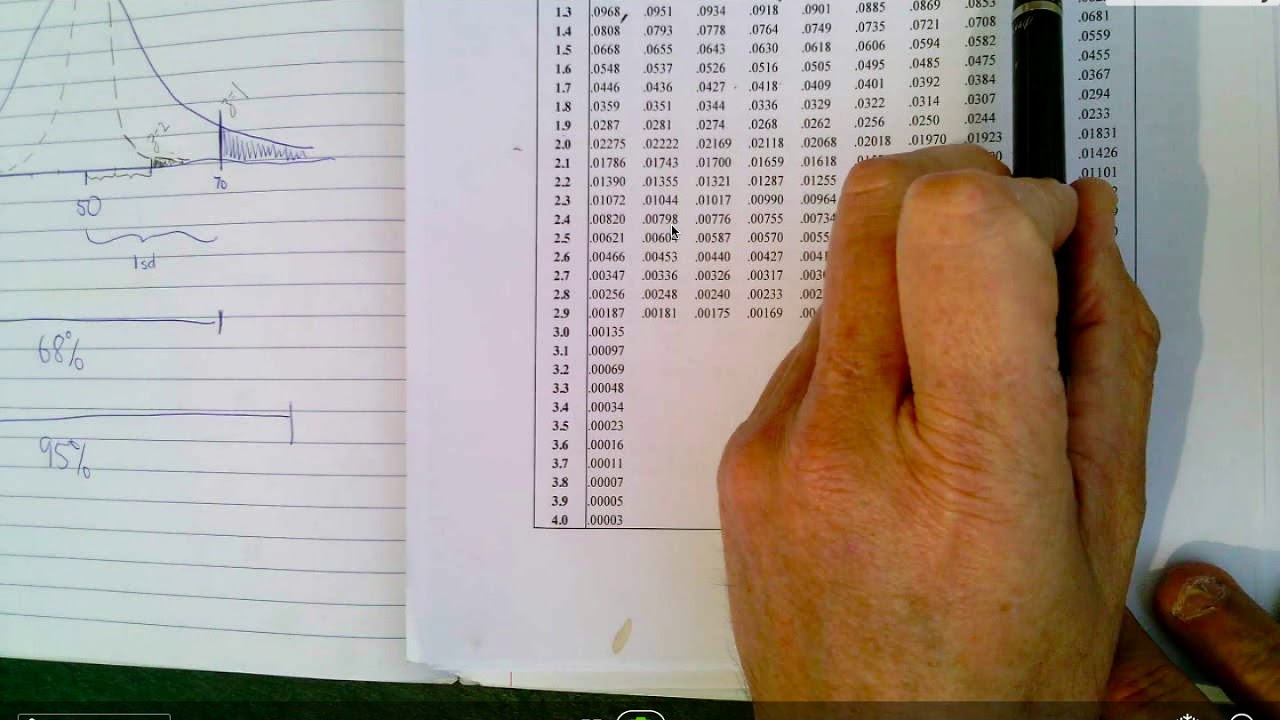 z=1
z=2
70
50
1sd
68%
95%
1.3 .0968 .0951 .0934 .0918 .0901 .0885 .0869 .0853
1.4 .0808 .0793 .0778 .0764 .0749 .0735 .0721 .0708 .0681
1.5 .0668 .0655 .0643 .0630 .0618 .0606 .0594 .0582 .0559
1.6 .0548 .0537 .0526 .0516 .0505 .0495 .0485 .0475 .0455
1.7 .0446 .0436 .0427 .0418 .0409 .0401 .0392 .0384 .0367
1.8 .0359 .0351 .0344 .0336 .0329 .0322 .0314 .0307 .0294
1.9 .0287 .0281 .0274 .0268 .0262 .0256 .0250 .0244 .0233
2.0 .02275 .02222 .02169 .02118 .02068 .02018 .01970 .01923 .01831
2.1 .01786 .01743 .01700 .01659 .01618 .01426
2.2 .01390 .01355 .01321 .01287 .01255 .01101
2.3 .01072 .01044 .01017 .00990 .00964
2.4 .00820 .00798 .00776 .00755 .00734
2.5 .00621 .00604 .00587 .00570
2.6 .00466 .00453 .00440 .00427
2.7 .00347 .00336 .00326 .00317
2.8 .00256 .00248 .00240 .00233
2.9 .00187 .00181 .00175 .00169
3.0 .00135
3.1 .00097
3.2 .00069
3.3 .00048
3.4 .00034
3.5 .00023
3.6 .00016
3.7 .00011
3.8 .00007
3.9 .00005
4.0 .00003